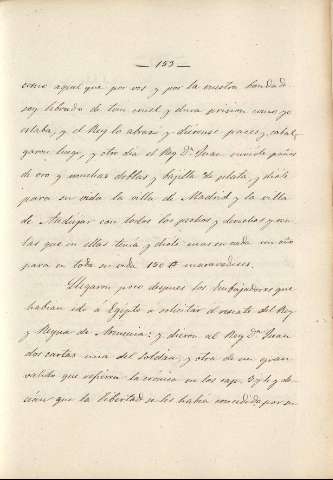 — 153 —
como aquel que por vos y por la vuestra bondad
soy librado de tan cruel y dura prision como yo
estaba, y el Rey lo abrazó y dieronse paces y cabal-
garon luego, y otro dia el Rey Dn. Juan envióle paños
de oro y muchas doblas y bajilla de plata, y dióle
para su vida la villa de Madrid y la villa
de Andujar con todos los pechos y derechos y con
las que en ellas tenia y dióle mas en cada un año
para en toda su vida 150 # maravedises.
Llegaron poco despues los Embajadores que
habian ido á Egipto á solicitar el rescate del Rey
y Reyna de Armenia: y dieron al Rey Dn. Juan
dos cartas una del Soldan, y otra de un gran
valido que refieren la crónica en los cap. 3 y 4 y de-
cian que la libertad se les habia concedido por su